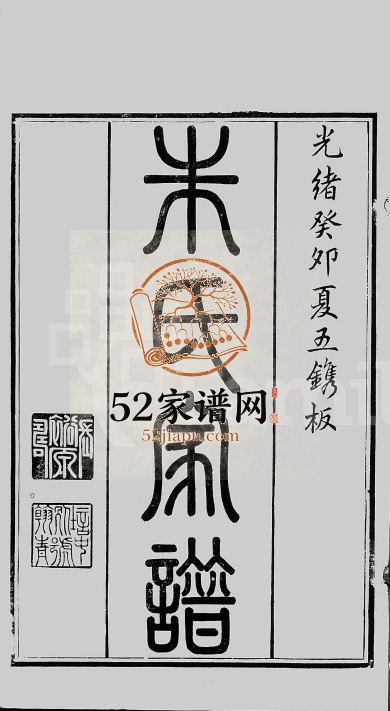 光緒癸卯夏五鐫板
朱氏家譜
52家谱网
52jiapu.com